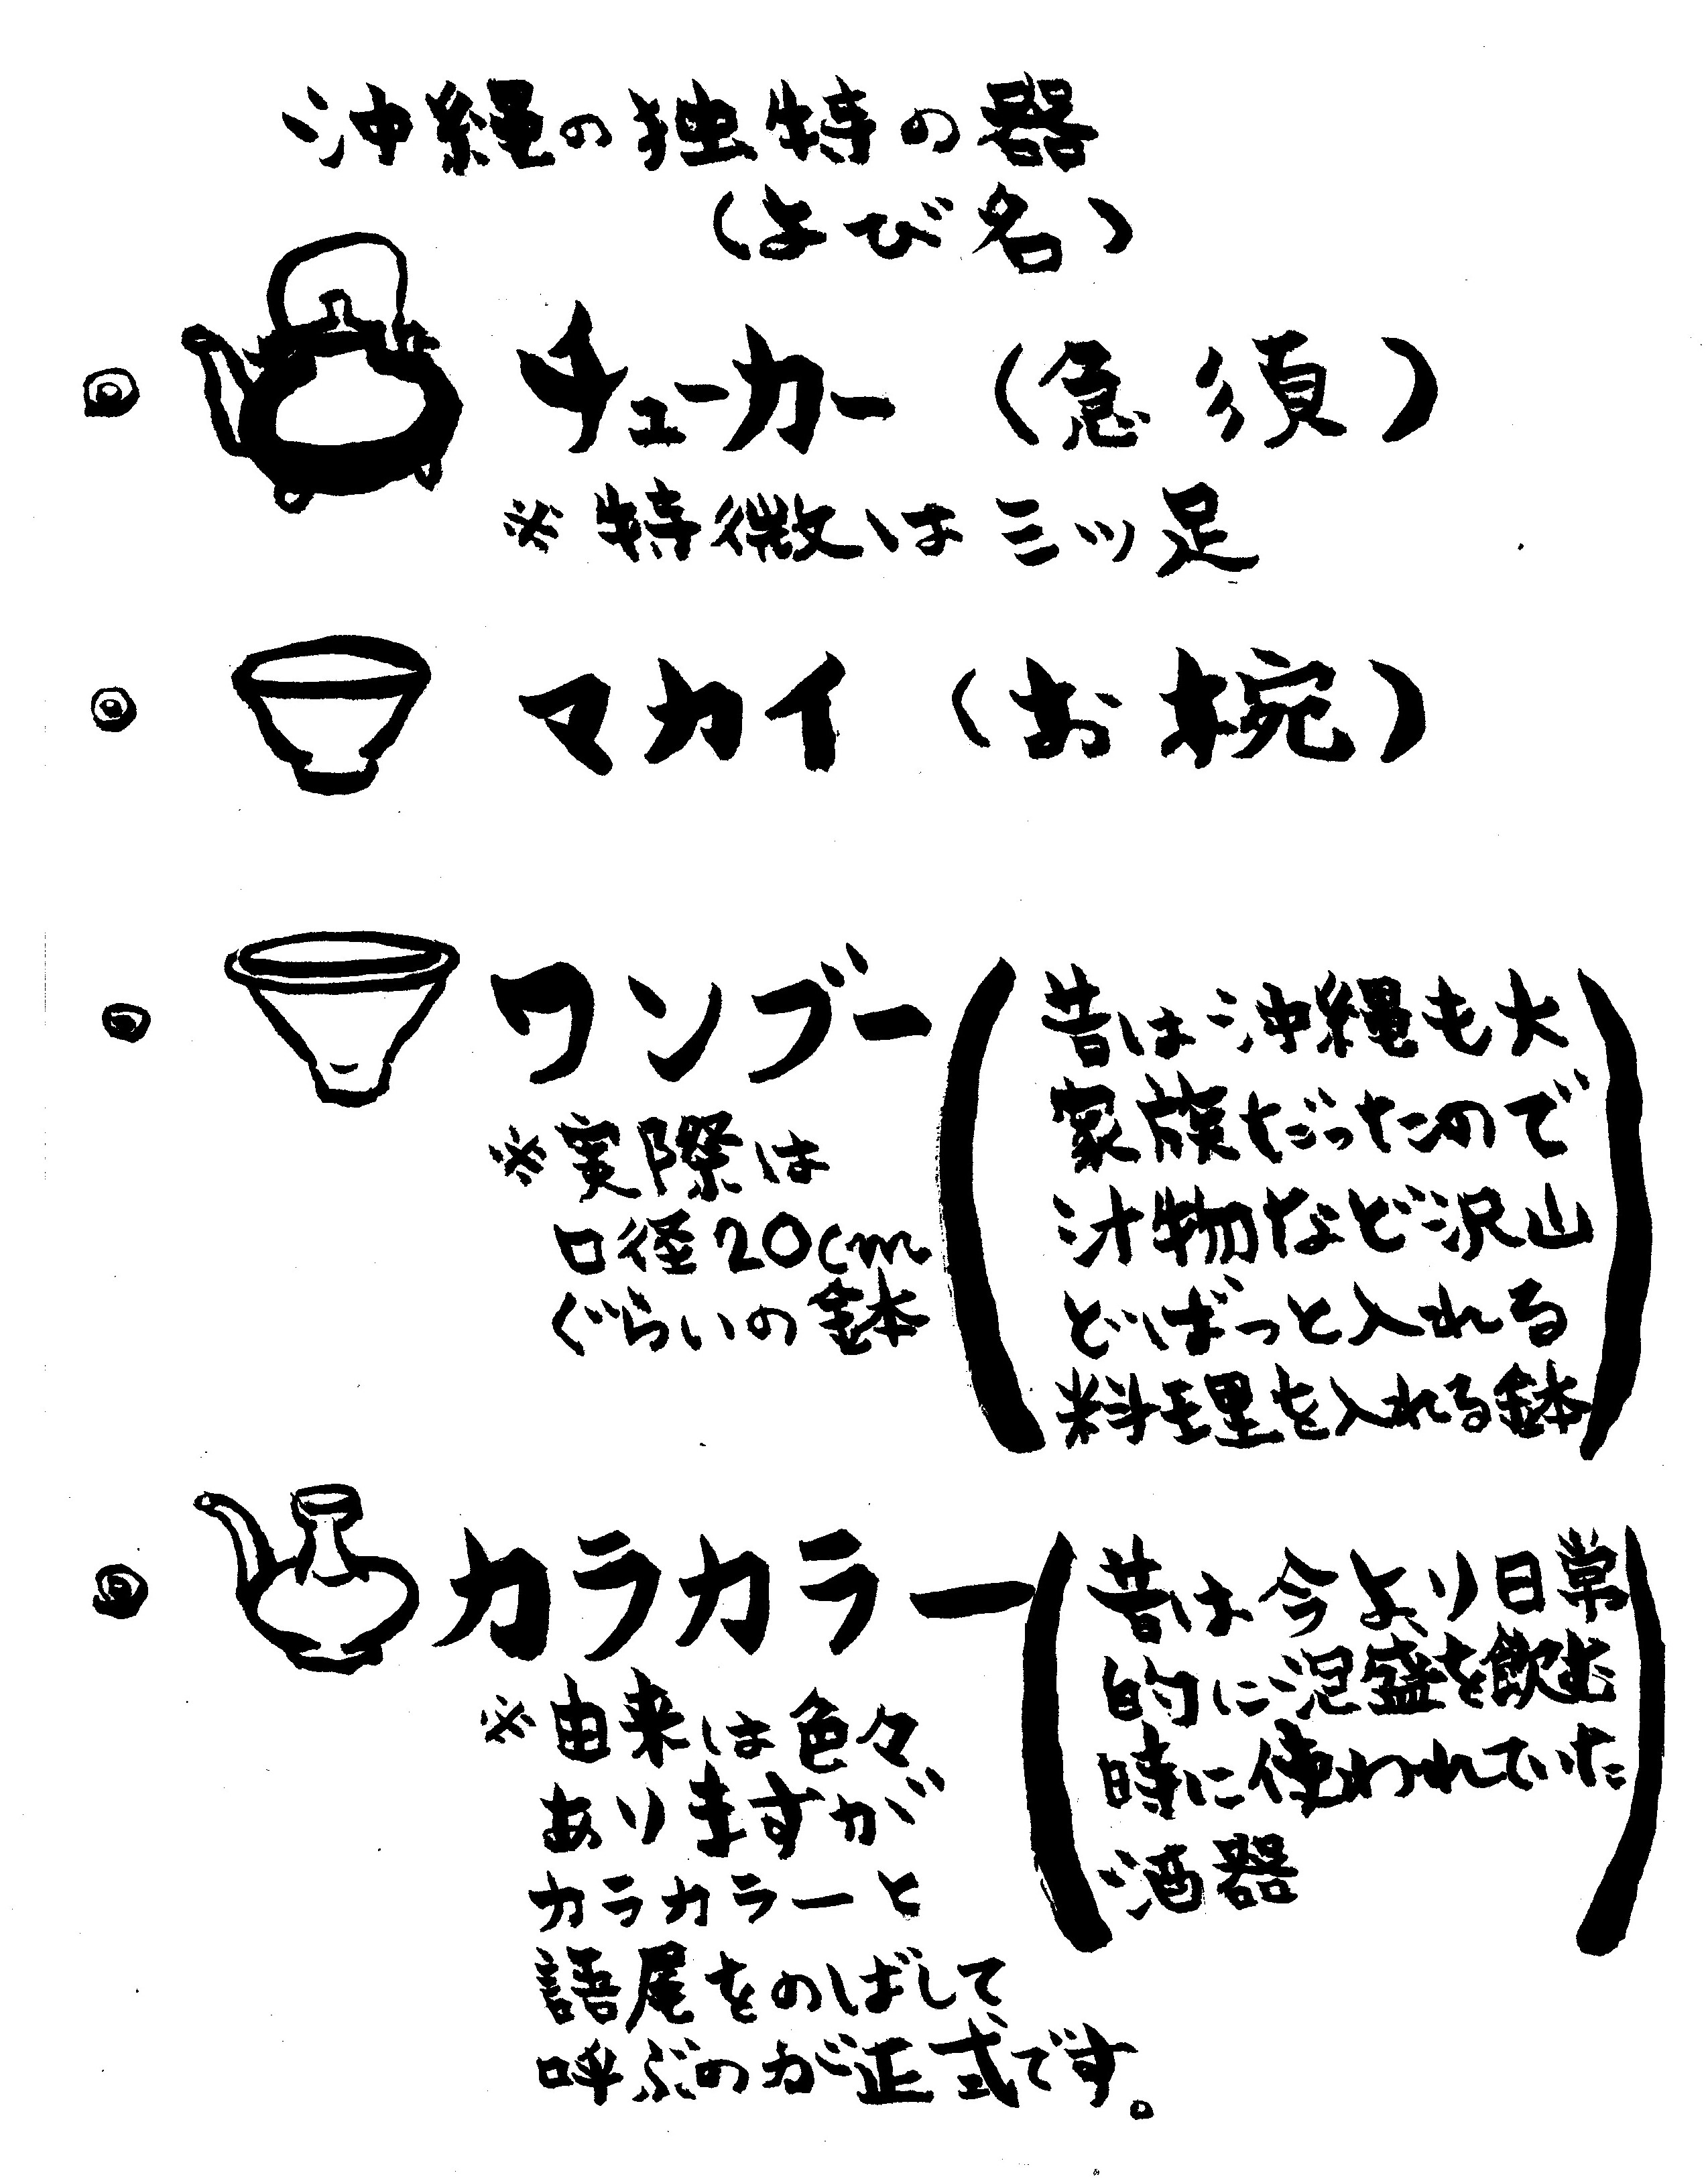 沖縄の独特の器
(よび名)
チューカー (急須)
※特徴は三ッ足
マカイ (お椀)
ワンブー
※実際は
口径20cm
ぐらいの鉢
(昔は沖縄も大
家族だったので
汁物など沢山
どばっと入れる
料理を入れる鉢)
カラカラー
※由来は色々
ありますが
カラカラーと
語尾をのばして
呼ぶのが正式です。
(昔は今より日常
的に泡盛を飲む
時に使われていた
酒器)